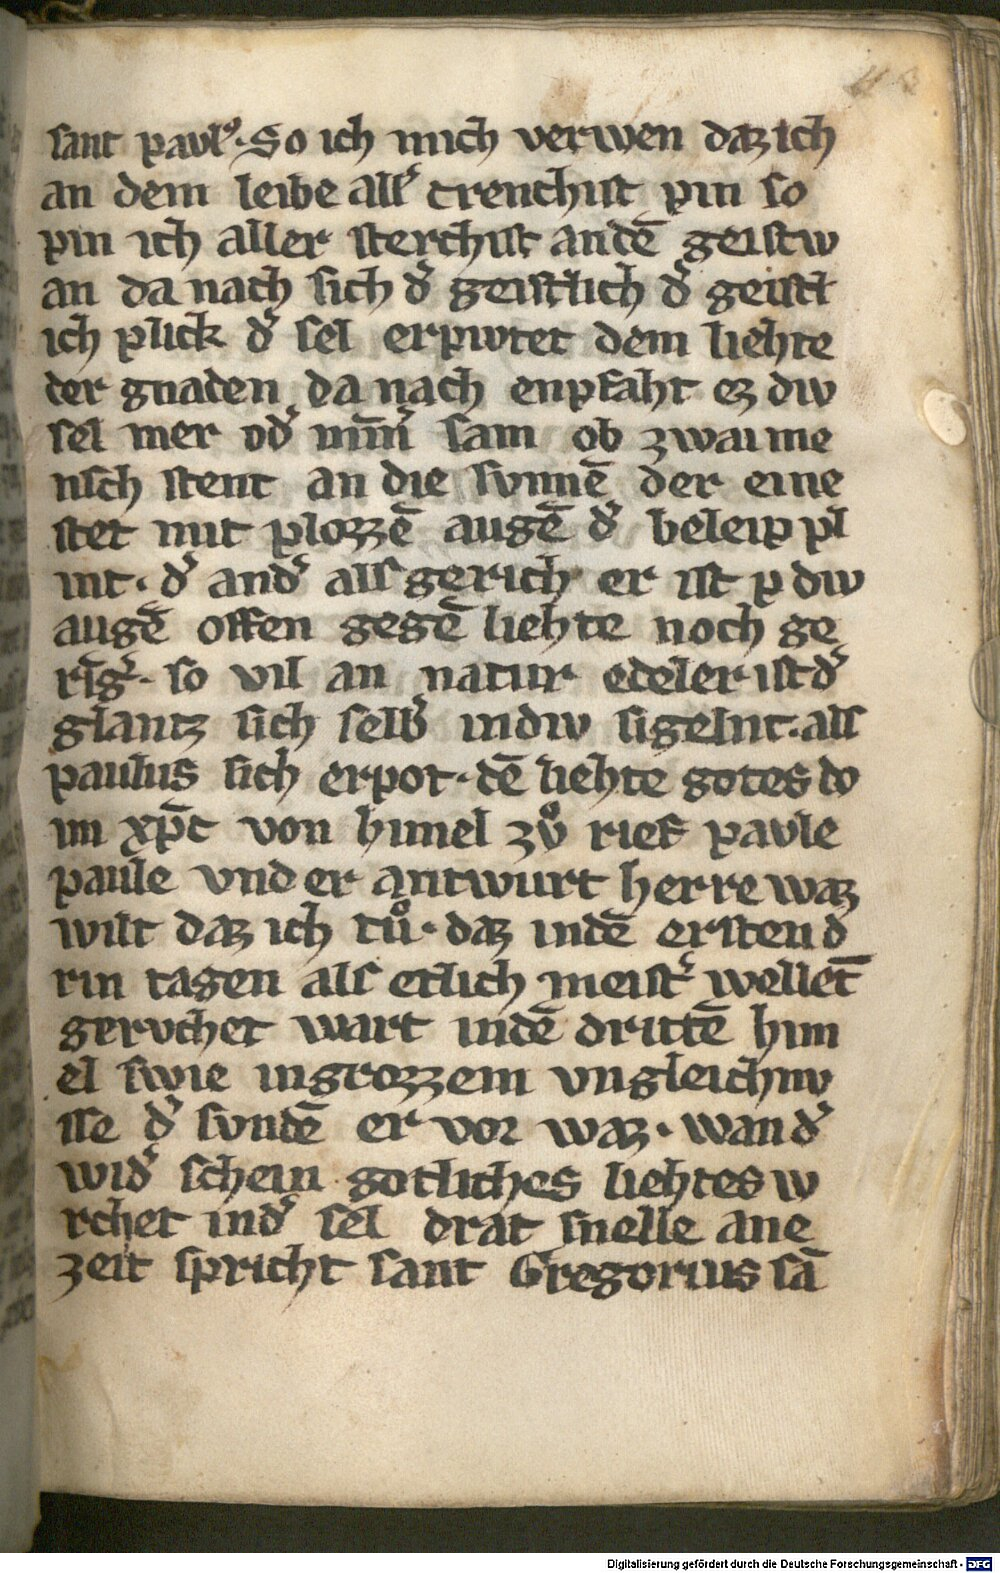 sant pavl᾽. So ich mich verwen daz ich
an dem leibe all᾽ crenchist pin so
pin ich aller sterchist an dē geistw
an da nach sich d᾽ geistlich d᾽ geistl
ich plick d᾽ sel erpwtet dem liehte
der gnaden da nach enpfaht ez dw
sel mer od᾽ mīn᾽ sam ob zwai me
nsch stent an die svnnē der eine
stet mit plozzē augē d᾽ beleip pl
int. d᾽ and᾽ als gerich er ist p dw
augē offen gegē liehte noch ge
rīg᾽. so vil an natur edeler ist d᾽
glantz sich selb᾽ in dw sigelnt. als
paulus sich erpot. dē liehte gotes do
im xp̄c von himel zvͦ rief pavle
paule vnd er antwurt herre waz
wilt daz ich tuͦ. daz in dē ersten d
rin tagen als etlich meist᾽ wellēt
gervchet wart in dē drittē him
el swie in grozzem vngleichnv
sse d᾽ svndē er vor waz. wan d᾽
wid᾽ schein gotliches liehtes w
rchet in d᾽ sel drat snelle ane
zeit spricht sant Gregorius sā
Digitalisierung gefördert durch die Deutsche Forschungsgemeinschaft - DFG